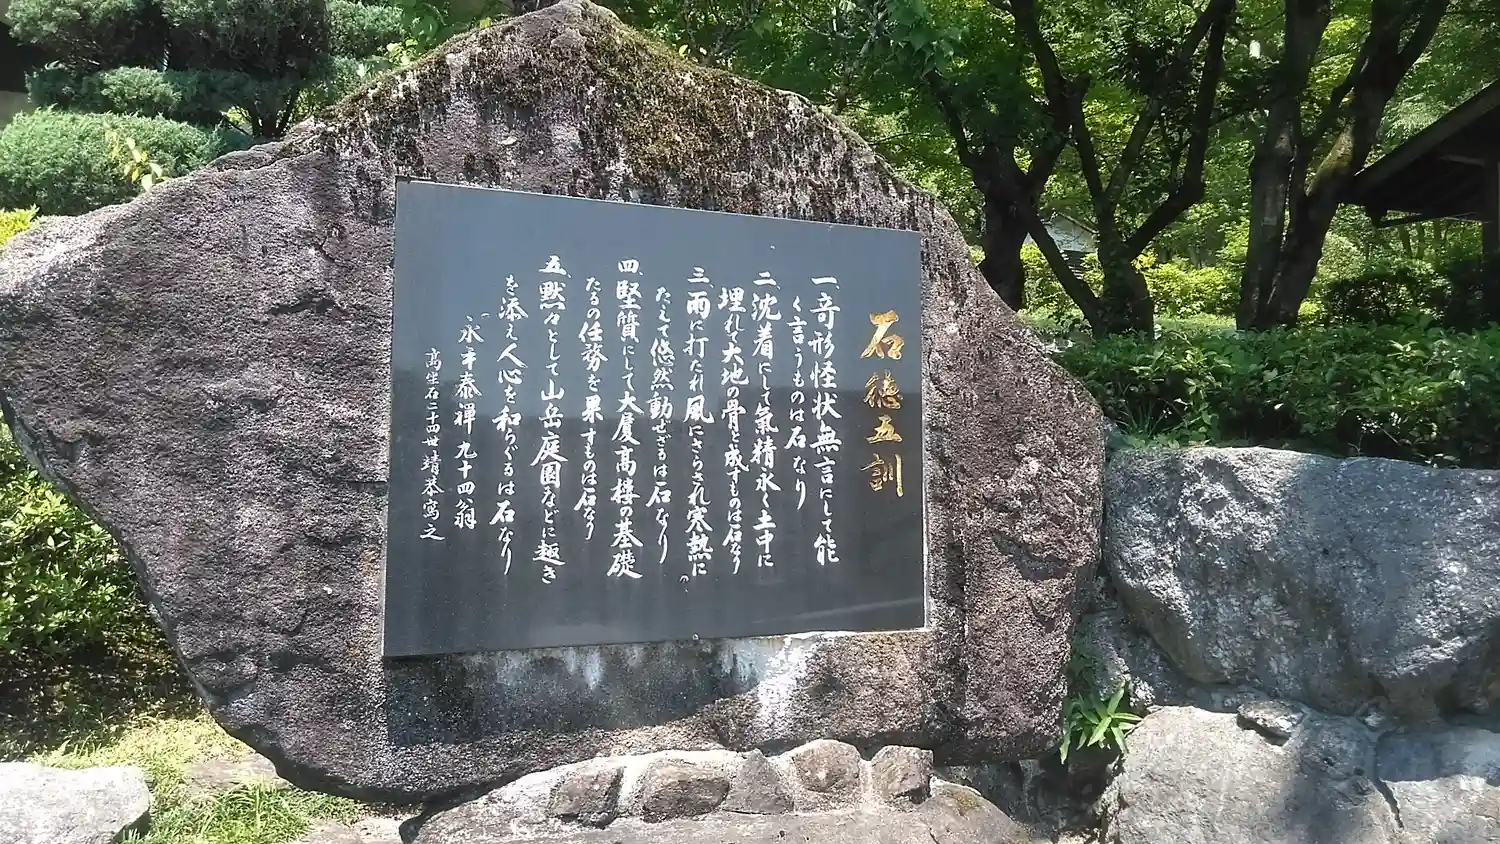 石徳五訓
一、奇形怪状無言にして能
く言うものは石なり
二、沈着にして氣精永く土中に
埋れて大地の骨と成すものは石なり
三、雨に打たれ風にさらされ寒熱に
たえて悠然動ぜざるは石なり
四、堅質にして大廈高楼の基礎
たるの任務を果すものは石なり
五、黙々として山岳庭園などに趣き
を添え人心を和らぐるは石なり
永平泰禅 九十四翁
高坐石二十四世 靖恭寫之